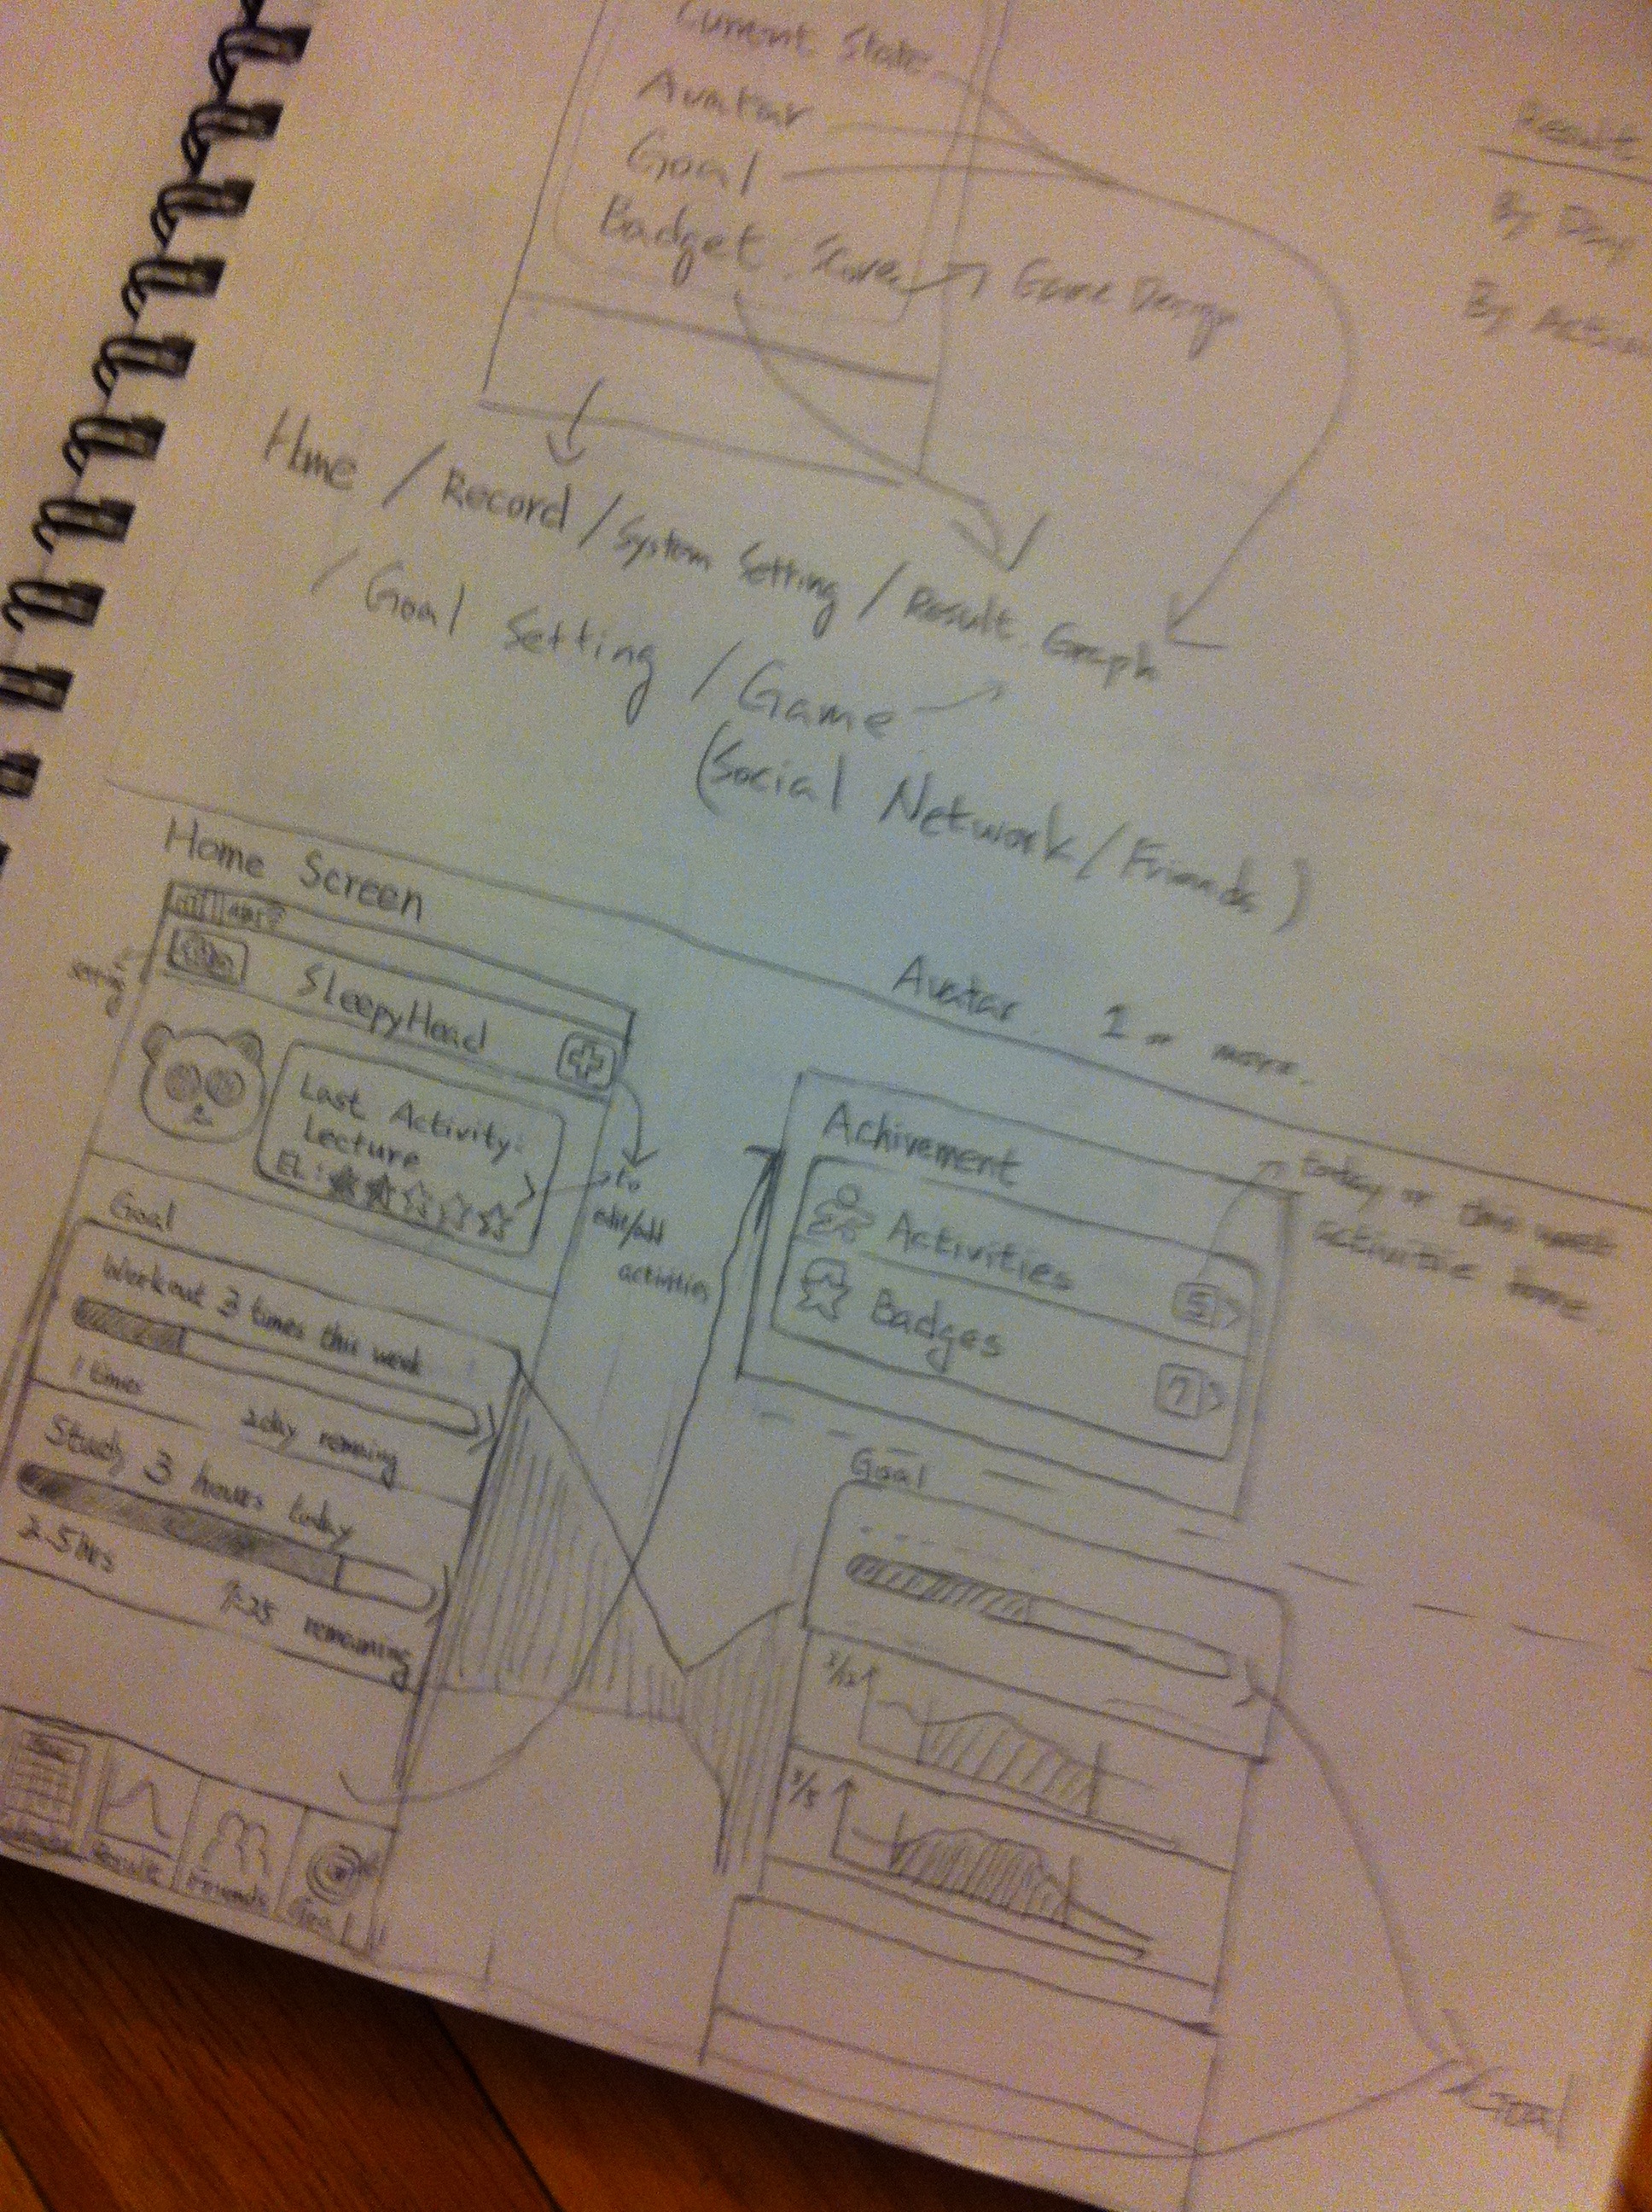 Current State
Avatar
Goal
Badget. Score
Game Design
Result
By Day
Home / Record / System Setting / Result. Graph
/ Goal Setting / Game
(Social Network / Friends)
Home Screen
Setting
SleepyHead
Last Activity:
Lecture
EL:
to
edit/add
activities
Goal
Workout 3 times this week
1 times
2day remaing
Study 3 hours today
2.5hrs
remaining
Result
Friends
Goal
Avatar. 1 or more.
Achivement
Activities 5 >
Badges 7 >
today or this week
Goal
Goal